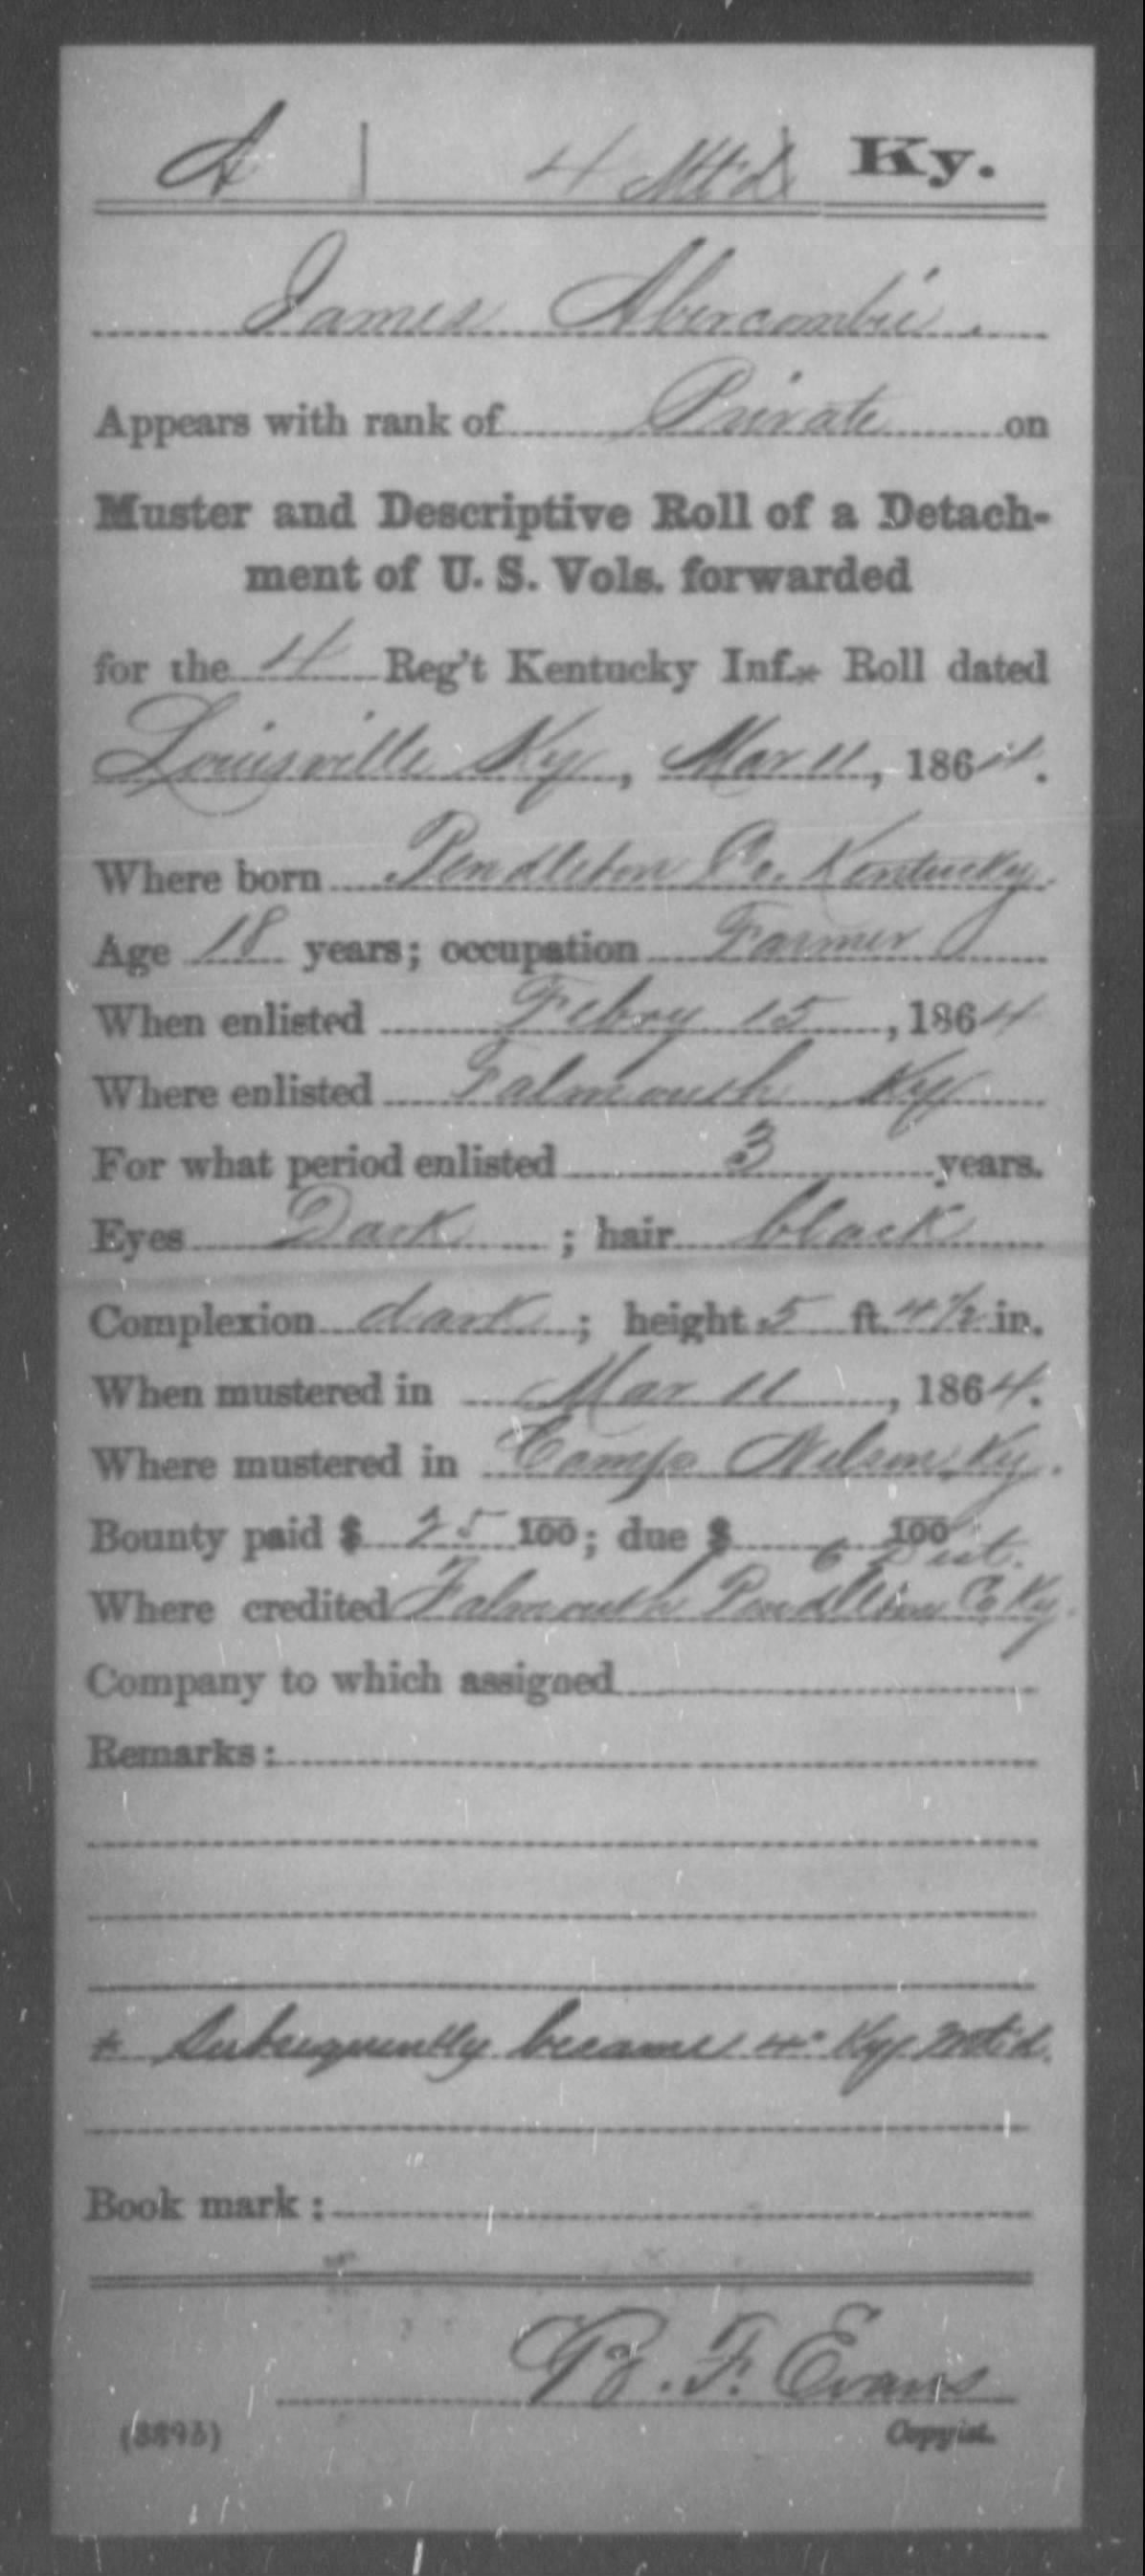 A | 4 Mt'd Ky.
James Abercombie.
Appears with rank of Private on
Muster and Descriptive Roll of a Detach-
ment of U. S. Vols. forwarded
for the 4 Reg't Kentucky Inf.* Roll dated
Louisville Ky, Mar 11, 1864.
Where born Pendleton Co. Kentucky.
Age 18 years; occupation Farmer
When enlisted Febry 15, 1864
Where enlisted Falmouth Ky
For what period enlisted 3 years.
Eyes Dark; hair black
Complexion dark; height 5 ft. 4 1/2 in.
When mustered in Mar 11, 1864.
Where mustered in Camp Nelson Ky.
Bounty paid $ 25 100; due $ 100
6 Dist.
Where credited Falmouth Pendleton Co. Ky.
Company to which assigned
Remarks:
* Subsequently became 4" Ky Mt'd.
Book mark:
B. F. Evans
(889b) Copyist.